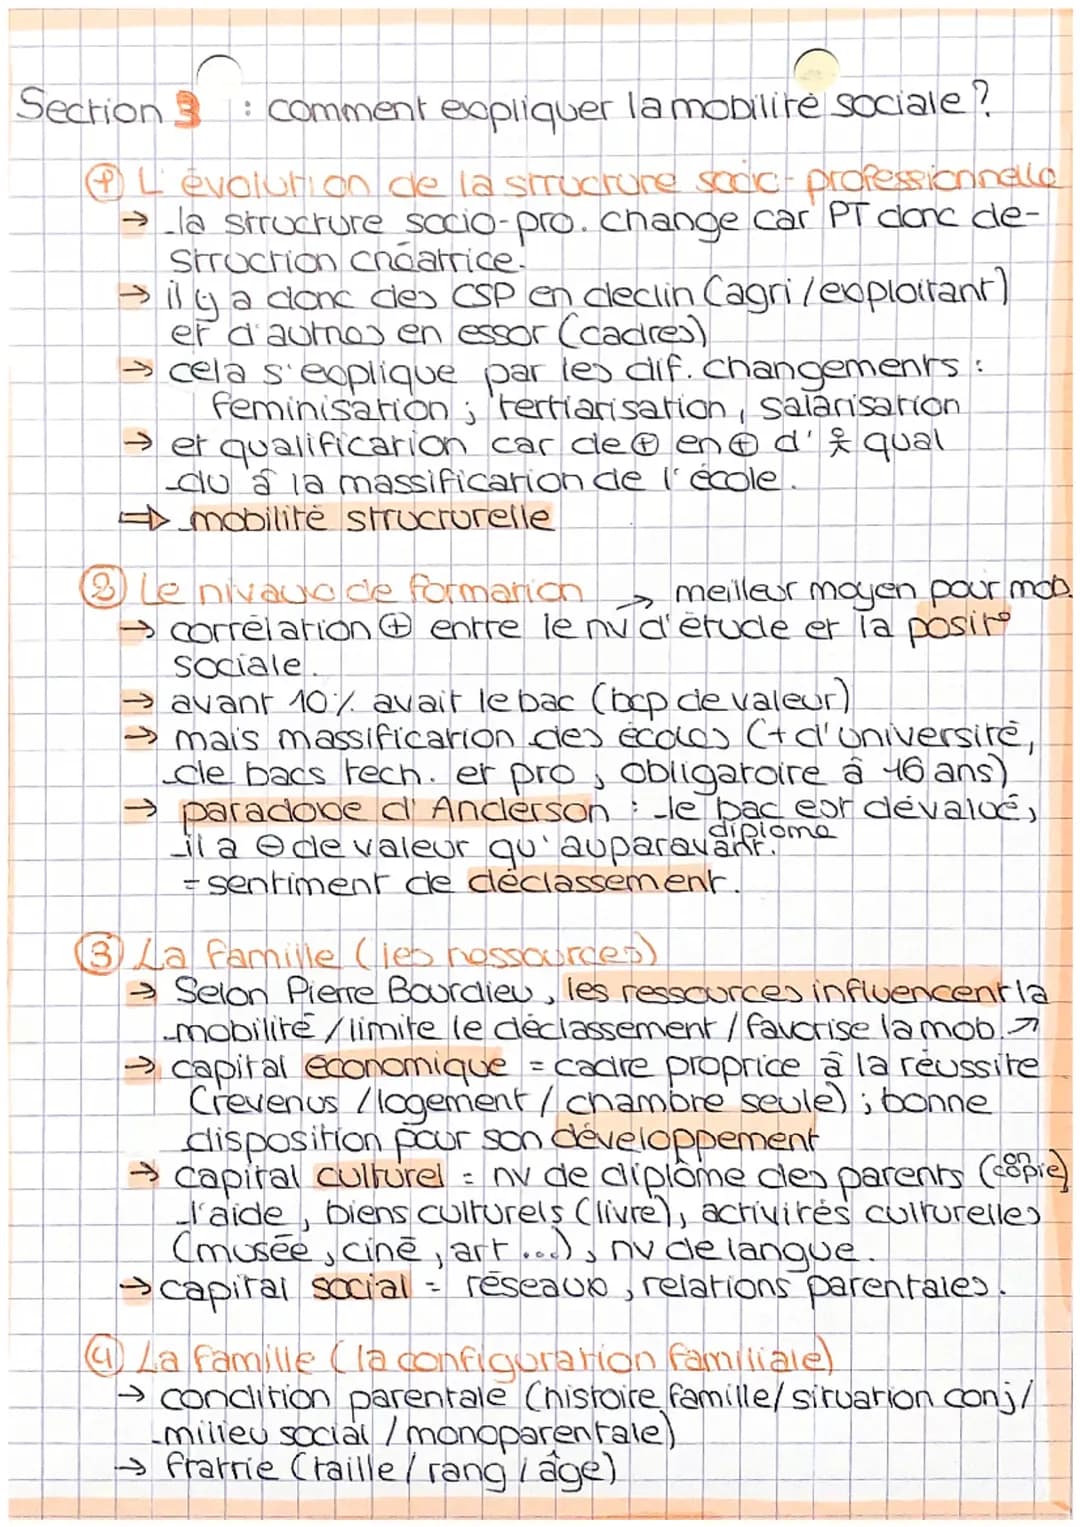 Section 3 : comment expliquer la mobilité sociale ?
① L'évolution de la structure socio-professionnelle
→ la structure socio-pro. change car PT donc de-
struction créatrice.
→ il y a donc des CSP en declin (agri/exploitant)
et d'autres en essor (cadres)
→ cela s'explique par les dif. changements :
feminisation ; tertiarisation, salarisation
→ et qualification car de ⊕ en ⊕ d' qual
du à la massification de l'école.
⇒ mobilité structurelle
② Le niveau de formation → meilleur moyen pour mob.
→ corrélation ⊕ entre le nv d'étude et la posit°
sociale.
→ avant 10% avait le bac (bcp de valeur)
→ mais massification des écoles (+ d'université,
de bacs tech. et pro, obligatoire à 16 ans)
→ paradoxe d'Anderson : le bac est dévalué,
diplome
il a ⊖ de valeur qu'auparavant.
= sentiment de déclassement.
③ La famille (les ressources)
→ Selon Pierre Bourdieu, les ressources influencent la
mobilité / limite le déclassement / favorise la mob. ↗
→ capital économique = cadre proprice à la réussite
(revenus / logement / chambre seule) ; bonne
disposition pour son développement
→ capital culturel = nv de diplôme des parents (on copie)
l'aide, biens culturels (livre), activités culturelles
(musée, ciné, art ...), nv de langue.
→ capital social = réseaux, relations parentales.
④ La famille (la configuration familiale)
→ condition parentale (histoire famille/situation conj/
milieu social / monoparentale)
→ fratrie (taille / rang / âge)